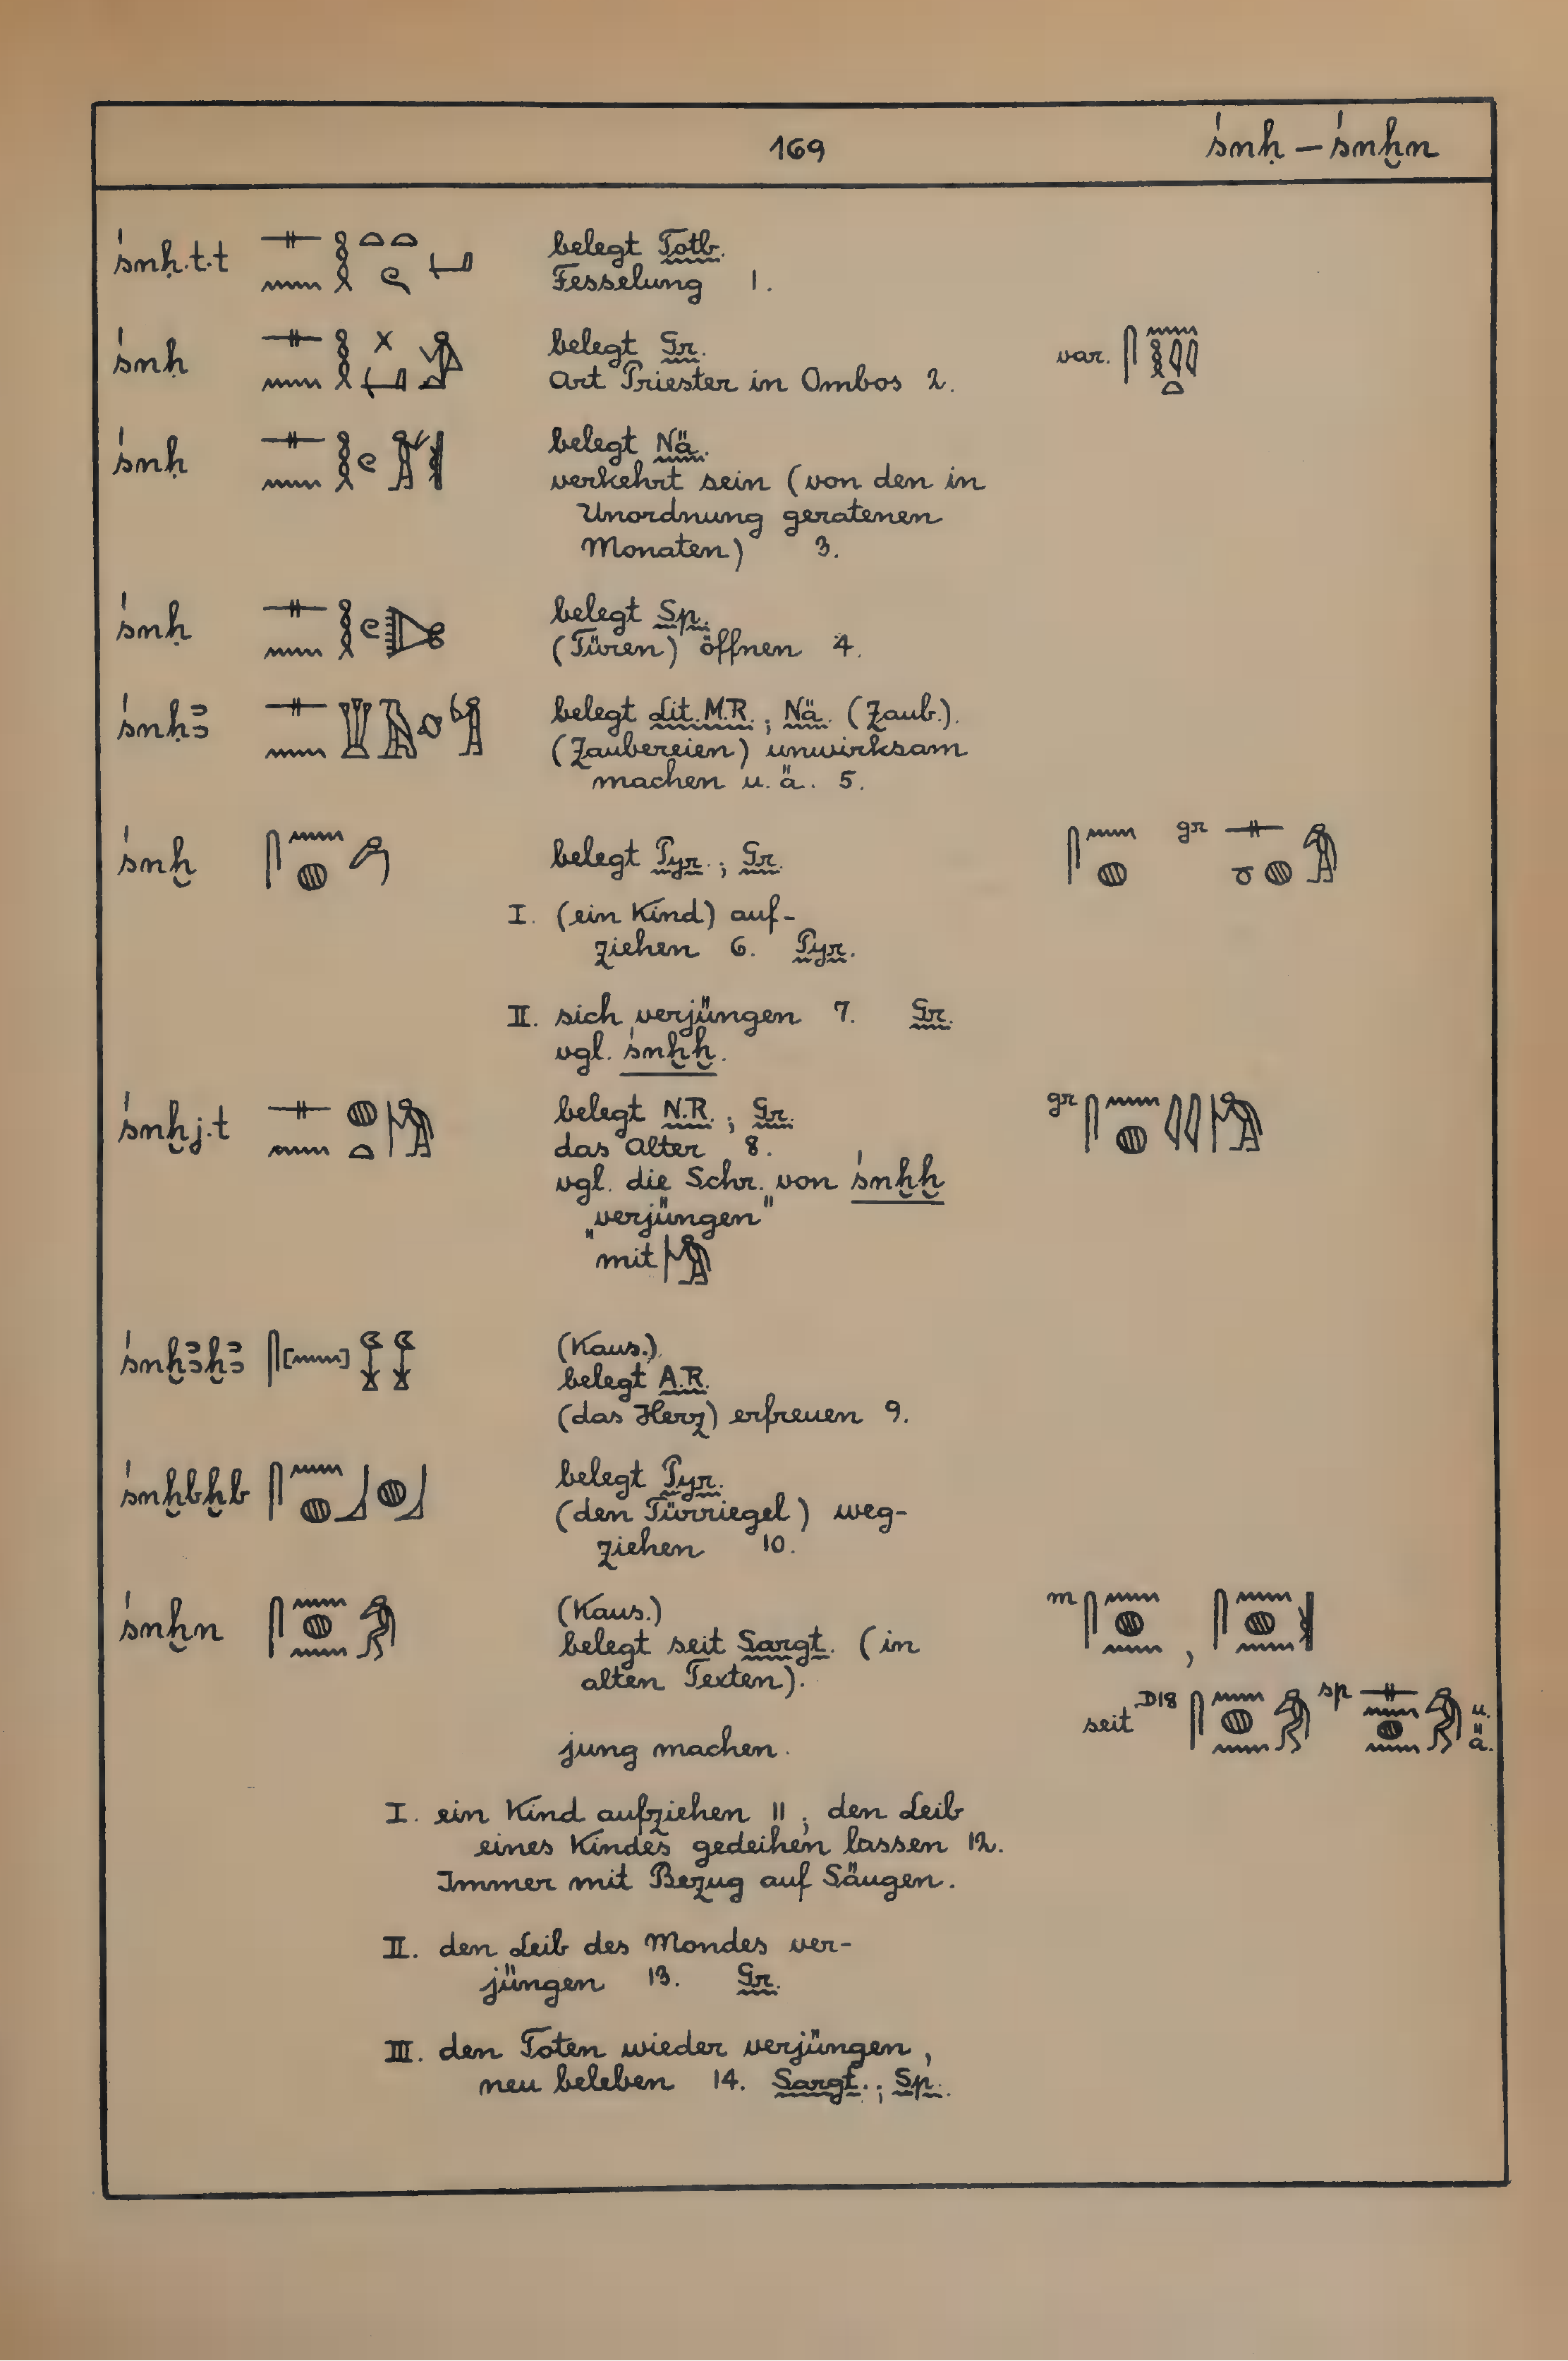 169
śnḥ – śnḫn
śnḥ.t.t
belegt Totb.
Fesselung 1.
śnḥ
belegt Gr.
var.
Art Priester in Ombos 2.
śnḥ
belegt Nä.
verkehrt sein (von den in
Unordnung geratenen
Monaten) 3.
śnḥ
belegt Sp.
(Türen) öffnen 4.
śnḥꜣ
belegt Lit. M.R.; Nä. (Zaub.).
(Zaubereien) unwirksam
machen u. ä. 5.
śnḫ
belegt Pyr.; Gr.
gr
I. (ein Kind) auf-
ziehen 6. Pyr.
II. sich verjüngen 7. Gr.
vgl. śnḫḫ.
śnḫj.t
belegt N.R.; Gr.
gr
das Alter 8.
vgl. die Schr. von śnḫḫ
„verjüngen"
mit
śnḫꜣḫꜣ
(Kaus.)
belegt A.R.
(das Herz) erfreuen 9.
śnḫbḫb
belegt Pyr.
(den Türriegel) weg-
ziehen 10.
śnḫn
(Kaus.)
m
belegt seit Sargt. (in
alten Texten).
seit D18 sp u. ä.
jung machen.
I. ein Kind aufziehen 11; den Leib
eines Kindes gedeihen lassen 12.
Immer mit Bezug auf Säugen.
II. den Leib des Mondes ver-
jüngen 13. Gr.
III. den Toten wieder verjüngen,
neu beleben 14. Sargt.; Sp.